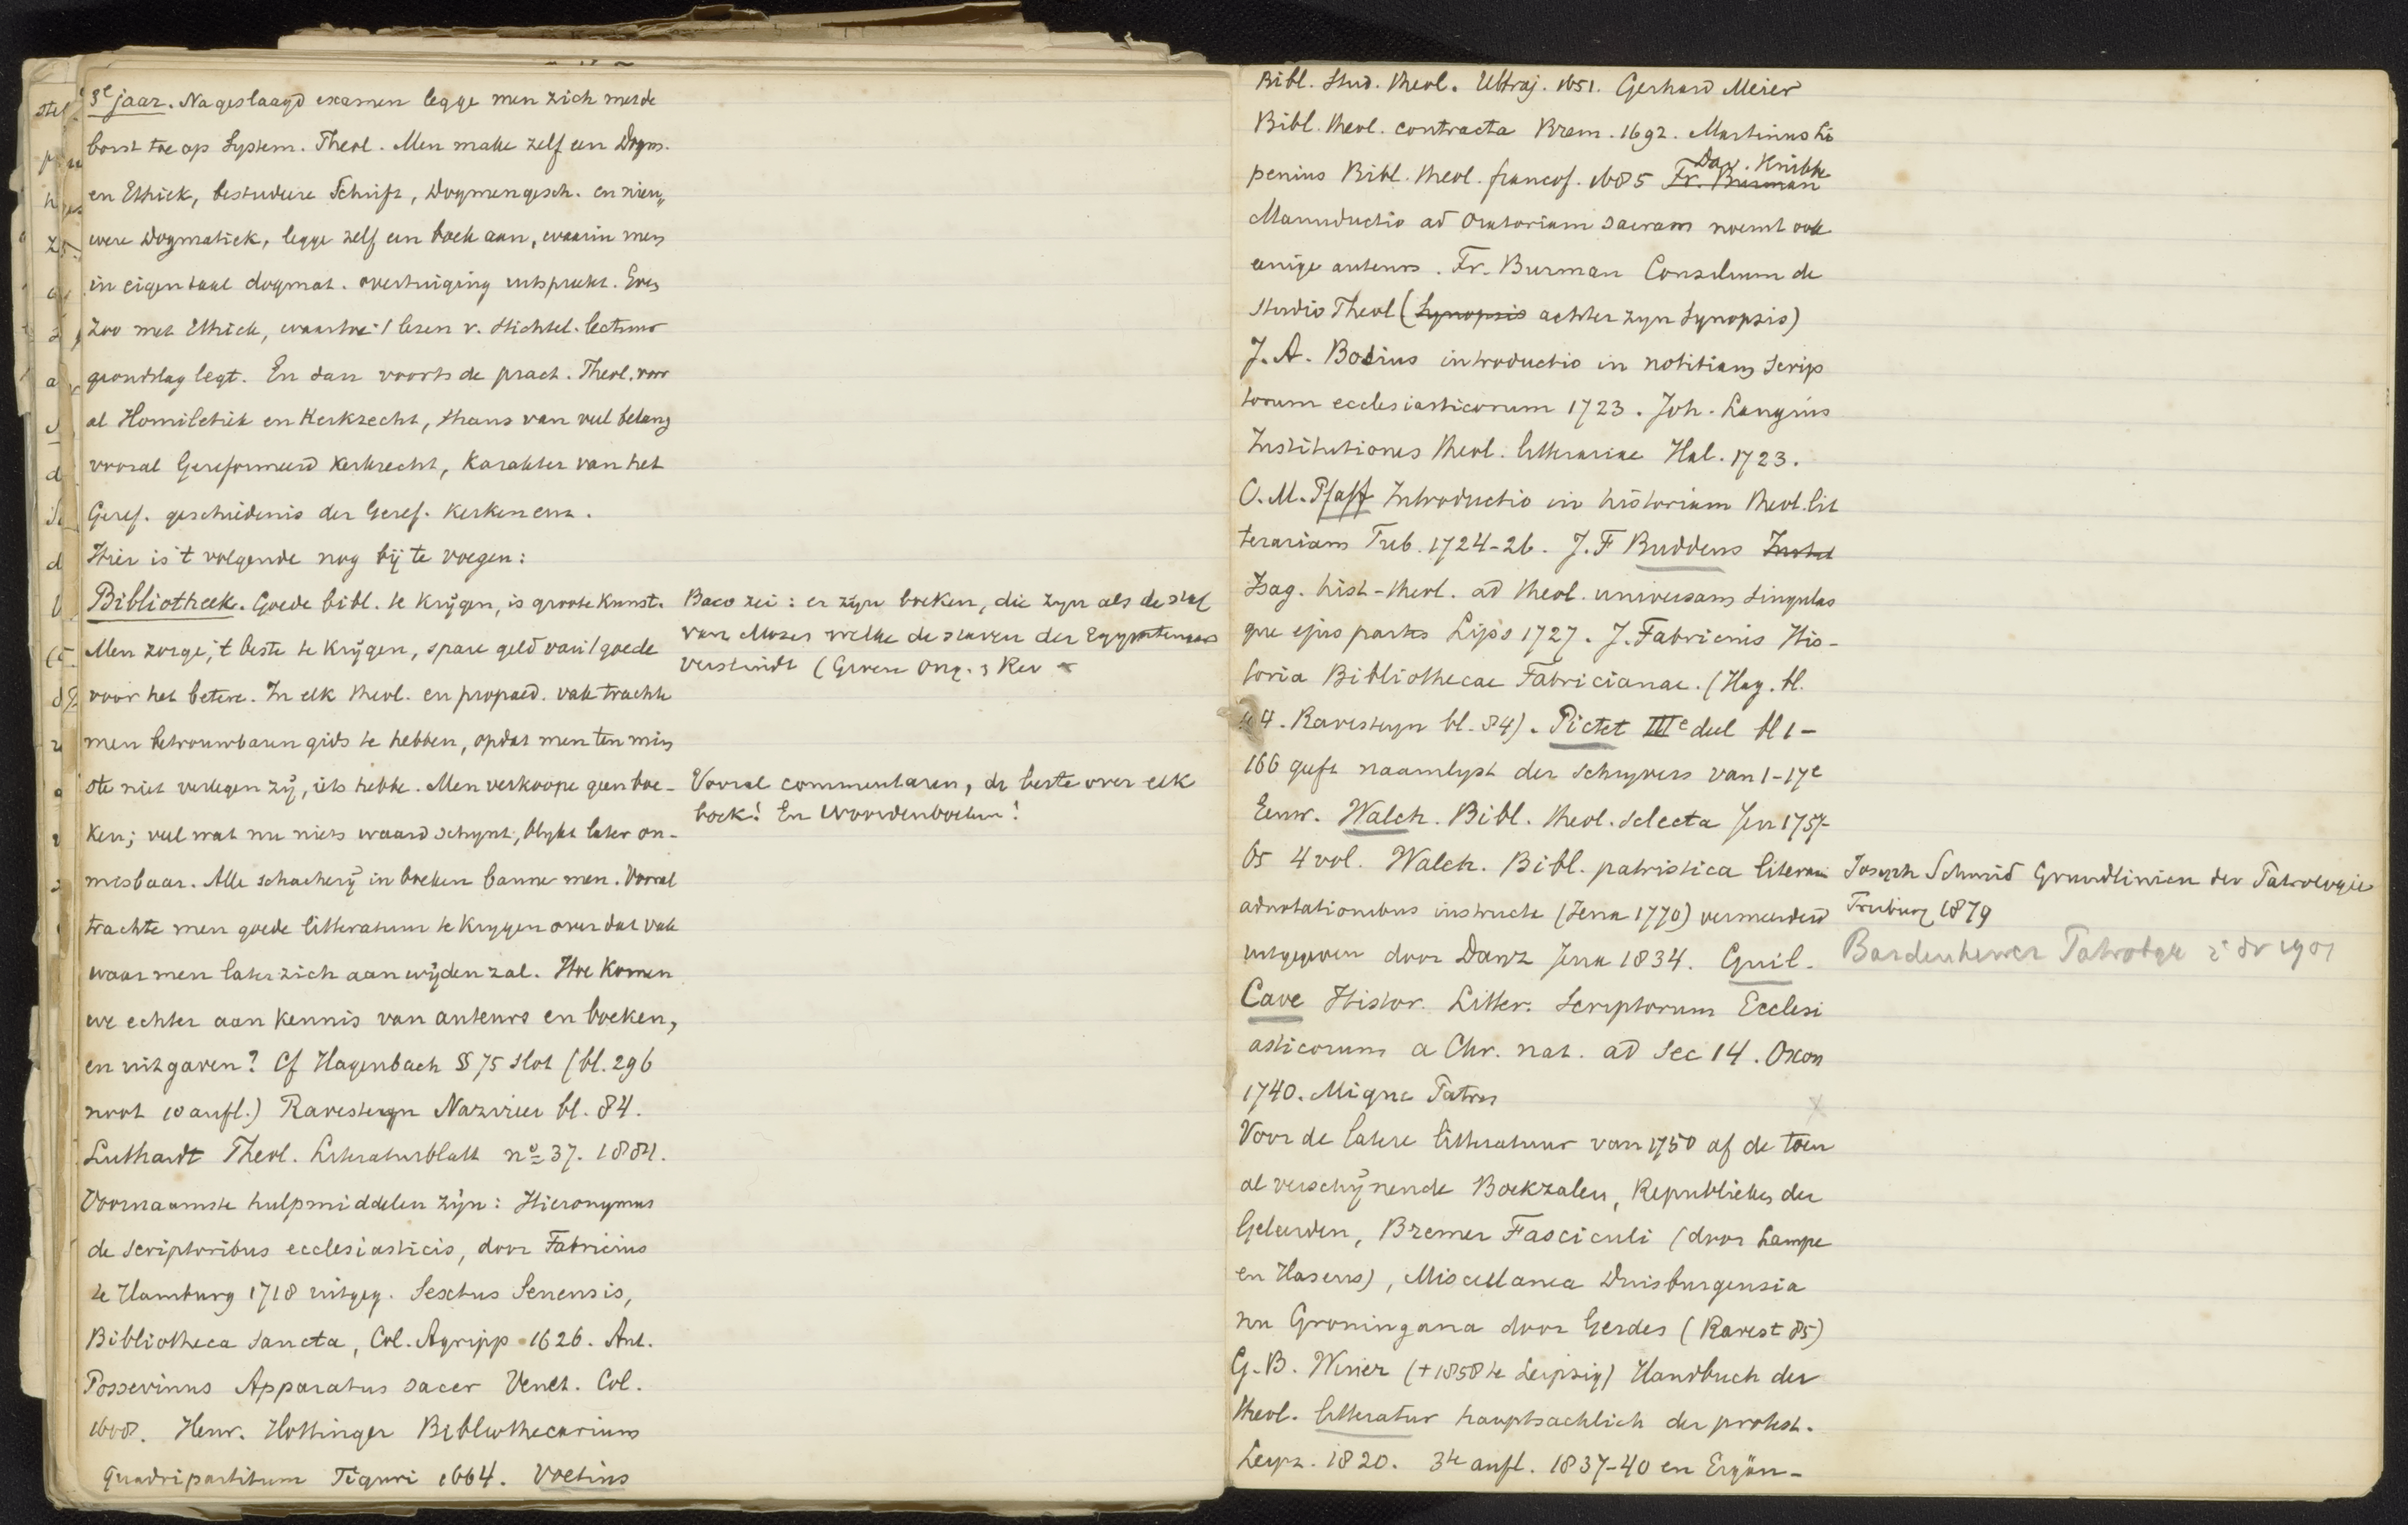 3e jaar. Na geslaagd examen legge men zich met de
borst toe op System. Theol. Men make zelf een Dogm.
en Ethiek, bestudeere Schrift, Dogmengesch. en nieu„
were Dogmatiek, legge zelf een boek aan, waarin men
in eigen taal dogmat. overtuiging uitspreekt. Even
zoo met Ethiek, waartoe 't lezen v. stichtel. lectuur
grondslag legt. En dan voorts de pract. Theol. voor
al Homiletiek en Kerkrecht, thans van veel belang
vooral Gereformeerd Kerkrecht, Karakter van het
Geref. geschiedenis der Geref. Kerken enz.
Hier is 't volgende nog bij te voegen:
Bibliotheek. Goede bibl. te krijgen, is groote kunst.
Men zorge, 't beste te krijgen, spare geld van 't goede
voor het betere. In elk theol. en propaed. vak trachte
men betrouwbaren gids te hebben, opdat men ten min
ste niet verlegen zij, iets hebbe. Men verkoope geen boe-
ken; veel wat nu niets waard schynt, blykt later on-
misbaar. Alle schacherij in boeken banne men. Vooral
trachte men goede litteratuur te krygen over dat vak
waar men later zich aan wijden zal. Hoe komen
we echter aan kennis van auteurs en boeken,
en uitgaven? Cf Hagenbach § 75 slot (bl. 296
noot 10 aufl.) Ravesteyn Nazireer bl. 84.
Luthardt Theol. Literaturblatt no 37. 1884.
Voornaamste hulpmiddelen zijn: Hieronymus
de scriptoribus ecclesiasticis, door Fabricius
te Hamburg 1718 uitgeg. Sextus Senensis,
Bibliotheca Sancta, Col. Agripp. 1626. Ant.
Possevinus Apparatus sacer Venet. Col.
1608. Henr. Hottinger Bibliothecarium
quadripartitum Tiguri 1664. Voetius
Baco zei: er zijn boeken, die zyn als de staf
van Mozes welke de staven der Egyptenaars
verslindt
Vooral commentaren, de beste over elk
boek! En Woordenboeken!
Bibl. Stud. theol. Ultraj. 1651. Gerhard Meier
Bibl. theol. contracta Brem. 1692. Martinus Li
penius Bibl. theol. francof. 1685 Fr. Burman Dav. Knibbe
Manuductio ad Oratoriam sacram noemt ook
eenige auteurs. Fr. Burman Consilium de
studio Theol (Synopsis achter zyn Synopsis)
J. A. Bosius introductio in notitiam scrip
torum ecclesiasticorum 1723. Joh. Langius
Institutiones theol. litterariae Hal. 1723.
C. M. Pfaff Introductio in historiam theol. lit
terariam Tub. 1724-26. J. F Buddeus Instit
Isag. hist-theol. ad theol. universam singulas
que ejus partes Lips 1727. J. Fabricius His-
toria Bibliothecae Fabricianae. (Hag. bl.
44. Ravesteyn bl. 84). Pictet IIIe deel bl 1-
166 geeft naamlyst der schryvers van 1-17e
Eeuw. Walch. Bibl. theol. selecta Jen 1757-
65 4 vol. Walch. Bibl. patristica literariis
adnotationibus instructa (Jena 1770) vermeerderd
uitgegeven door Danz Jena 1834. Guil.
Cave Histor. Litter. Scriptorum Ecclesi
asticorum a Chr. nat. ad sec 14. Oxon
1740. Migne Patres
Voor de latere litteratuur van 1750 af de toen
al verschijnende Boekzalen, Republieken der
Geleerden, Bremer Fasciculi (door Lampe
en Hasens), Miscellanea Duisburgensia
nu Groningana door Gerdes (Ravest 85)
G. B. Winer (+1858 te Leipzig) Handbuch der
theol. litteratur hauptsachlich der protest.
Leipz. 1820. 3te aufl. 1837-40 en Ergän-
Joseph Schmid Grundlinien der Patrologie
Freiburg 1879
Bardenhewer Patrologie 2e dr 1901